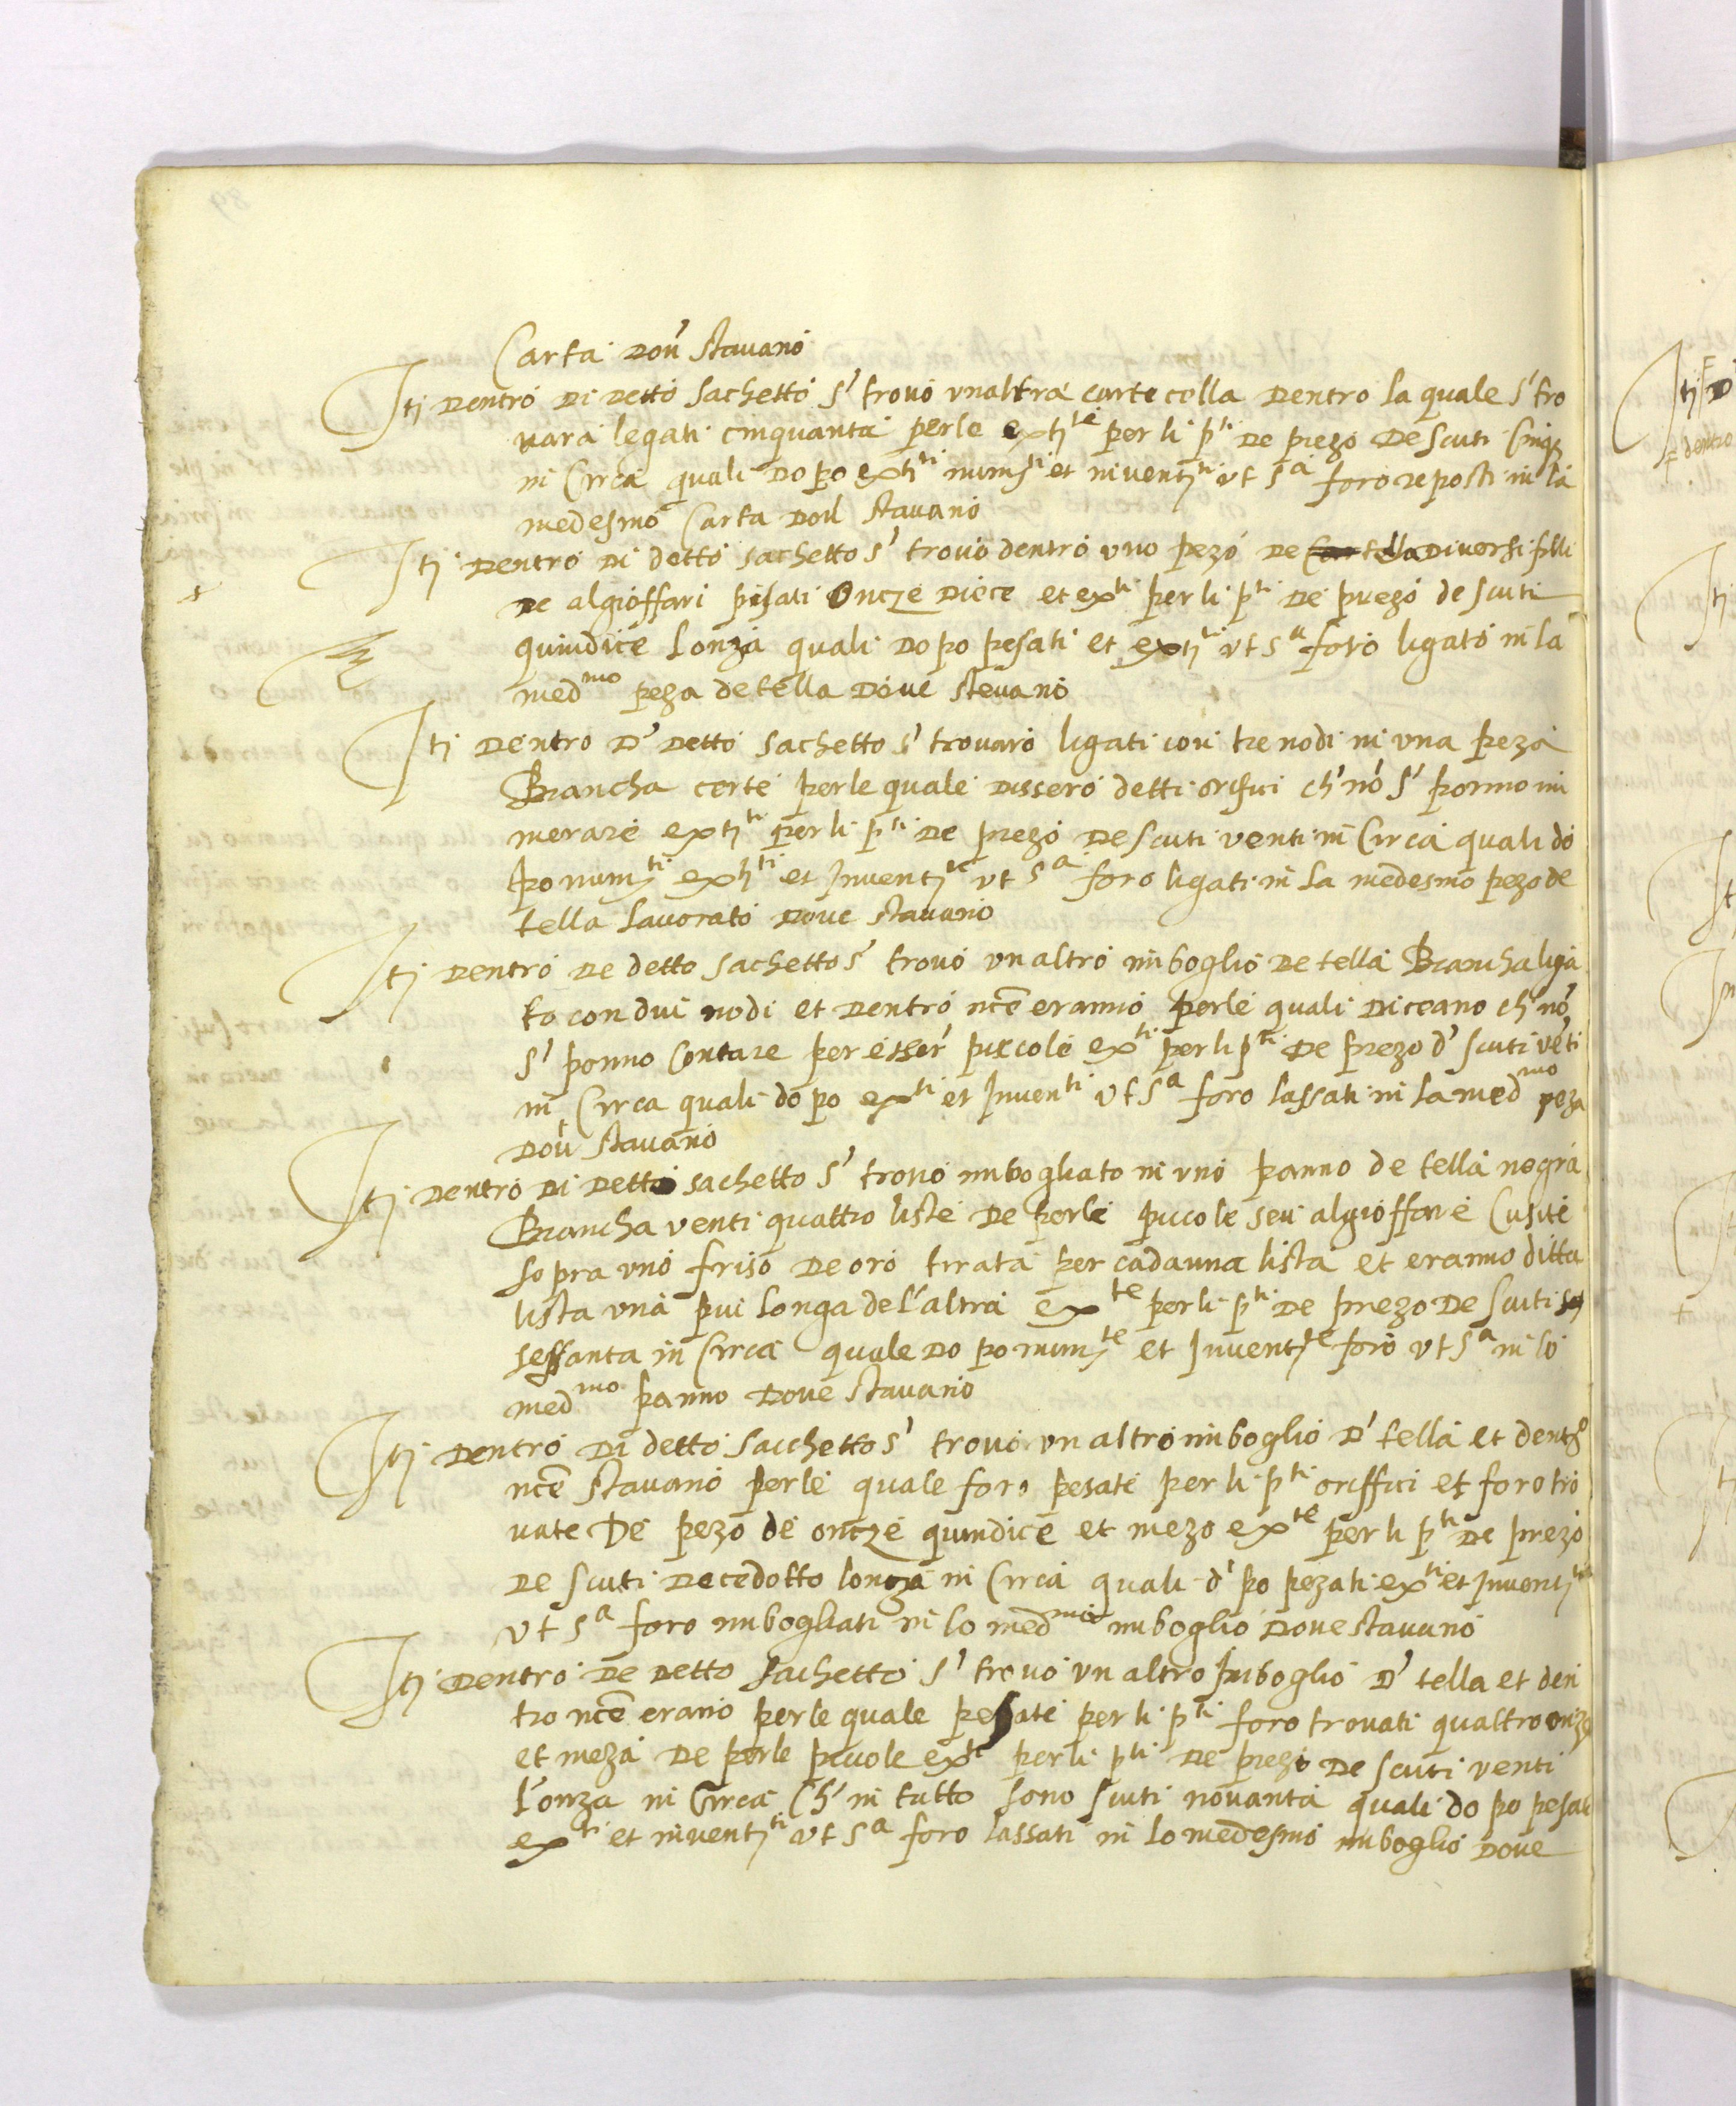 Carta dou' stavano
Itj dentro di detto sachetto s' trovò unaltra carte cella dentro la quale s' tro
vara legati cinquanta perle extj^te per li p^ti de prezo de scuti cinq
in circa quali dopo exti^ti num^ti et inventj^ti ut s^a foro reposti in la
medesmo carta dou' stavano
Itj dentro di detto sachetto s' trovò dentro uno pezo de tella diversi filli
de algioffari pisati Onze diece et ex^ti per li p^ti de prezo de scuti
quindice Lonza quali dopo pesati et extj^ti ut s^a foro ligato in la
med^mo peza de tella dove stevano
Itj dentro d' detto sachetto s' trovaro ligati con tre nodi in una peza
Biancha certe perle quale dissero detti orifici ch' nò s' ponno nu
merare extj^ti per li p^ti de prezo de scuti venti in circa quali do
po num^ti exti^ti et Inventj^ti ut s^a foro ligati in la medesmo pezo de
tella lavorato dove stavano
Itj dentro de detto sachetto s' trovò un altro imboglio de tella Biancha liga
to con dui nodi et dentro nce eranno perle quali diceano ch' nò
s' ponno contare per esser' piccole ex^ti per li p^ti de prezo d' scuti vēti
in circa quali dopo ex^ti et Inven^ti ut s^a foro lassati in la med^mo peza
dou' stavano
Itj dentro di detto sachetto s' trovò imbogliato in uno panno de tella negra
Biancha venti quattro liste de perle piccole seu algioffare cusite
sopra uno friso de oro tirata per cadauna lista et eranno ditta
lista una piu longa de l'altra ex^te per li p^ti de prezo de scuti
sessanta in circa quale dopo num^te et Inventj^te foro ut s^a in lo
med^mo panno dove stavano
Itj dentro di detto sacchetto s' trovò un altro imboglio d' tella et dentro
nce stavano perle quale foro pesate per li p^ti oriffici et foro tro
vate de pezo de onze quindice et mezo ex^te per li p^ti de prezo
de scuti decedotto lonza in circa quali d'po pezati ex^ti et Inventj^ti
ut s^a foro imbogliati in lo med^mo imboglio dove stavano
Itj dentro de detto sachetto s' trovò un altro Imboglio d' tella et den
tro nce erano perle quale pesate per li p^ti foro trovati quattro onze
et meza de perle picole ex^te per li p^ti de prezo de scuti venti
l'onza in circa ch' in tutto sono scuti novanta quali dopo pesati
ex^ti et inventj^ti ut s^a foro lassati in lo medesmo imboglio dove